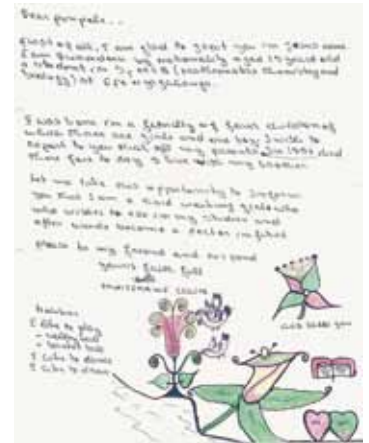 Dear penpale...
First of all, I am glad to greet you in Jesus name
I am Rwandan by nationality aged 19 years old
a student in S5 MCB (mathematic chemistry and
biology) at
I was born in a family of four children of
which three are girls and one boy. I wish to
report to you that all my parents in 1994 died
there fore to day I live with my brother.
Let me take this opportunity to inform
you that I am a hard working girl who
who wishes to in my studies and
after wards become a doctor in future
please be my friend and respond
yours faith full
hobbies
I like to play
- volley ball
- basket ball
I like to dance
I like to
God bless you